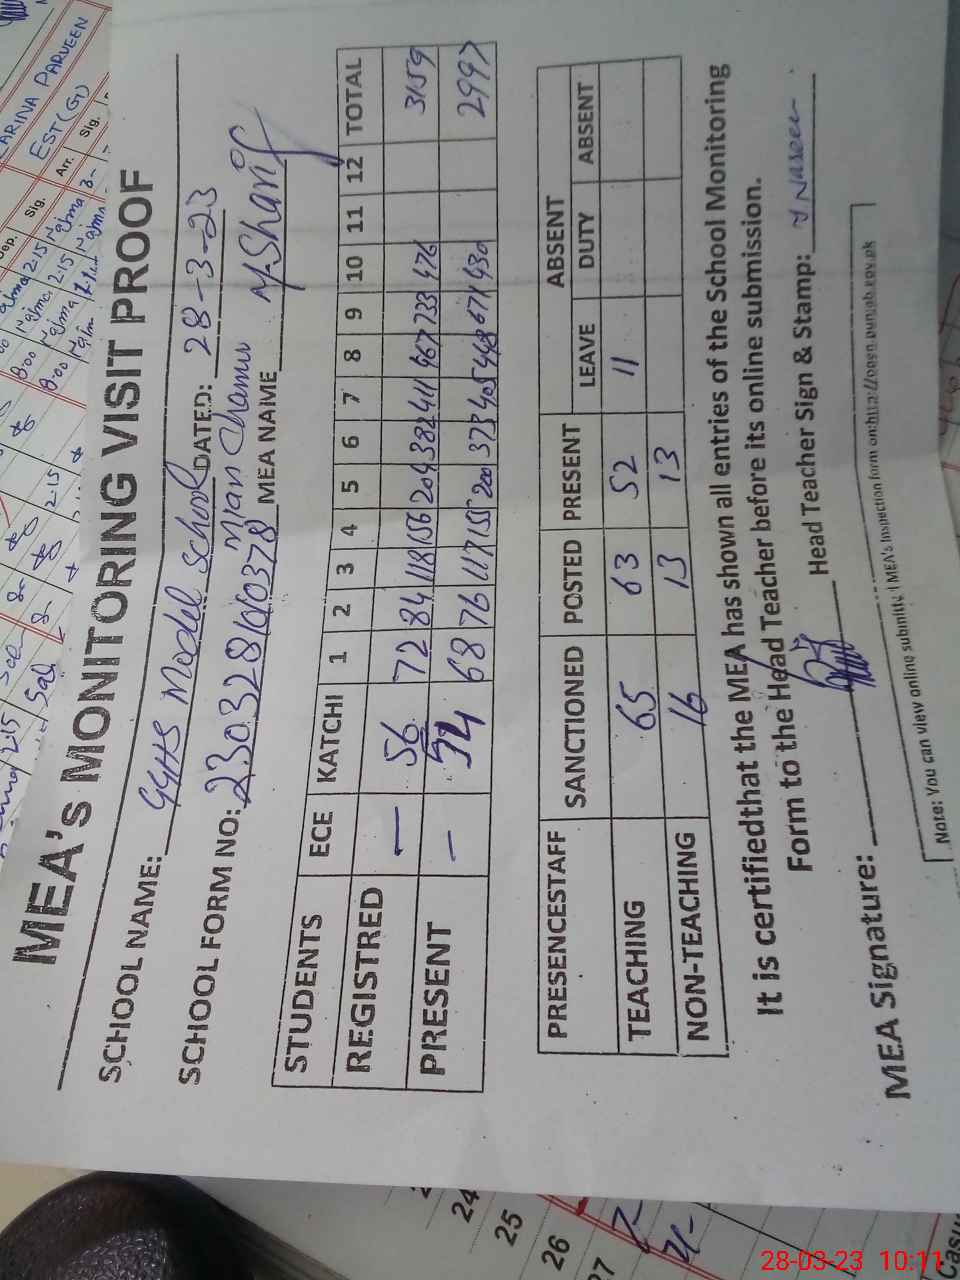 MEA's MONITORING VISIT PROOF
SCHOOL NAME: GGHS Model School DATED: 28-3-23
Mian Channu
SCHOOL FORM NO: MEA NAME M. Sharif
STUDENTS ECE KATCHI 1 2 3 4 5 6 7 8 9 10 11 12 TOTAL
REGISTRED — 56 72 84 118 156 204 382 411 467 733 476 3159
PRESENT — 54 68 76 117 155 200 373 405 448 671 430 2997
PRESENCESTAFF SANCTIONED POSTED PRESENT ABSENT
LEAVE DUTY ABSENT
TEACHING 65 63 52 11
NON-TEACHING 16 13 13
It is certifiedthat the MEA has shown all entries of the School Monitoring
Form to the Head Teacher before its online submission.
MEA Signature: Head Teacher Sign & Stamp: Naseem
Note: You can view online submitted MEA's Inspection form on:http://open.punjab.gov.pk
ARINA PARVEEN
EST (G)
Sig. Arr. Sig.
24
25
26
27
28-03-23 10:11